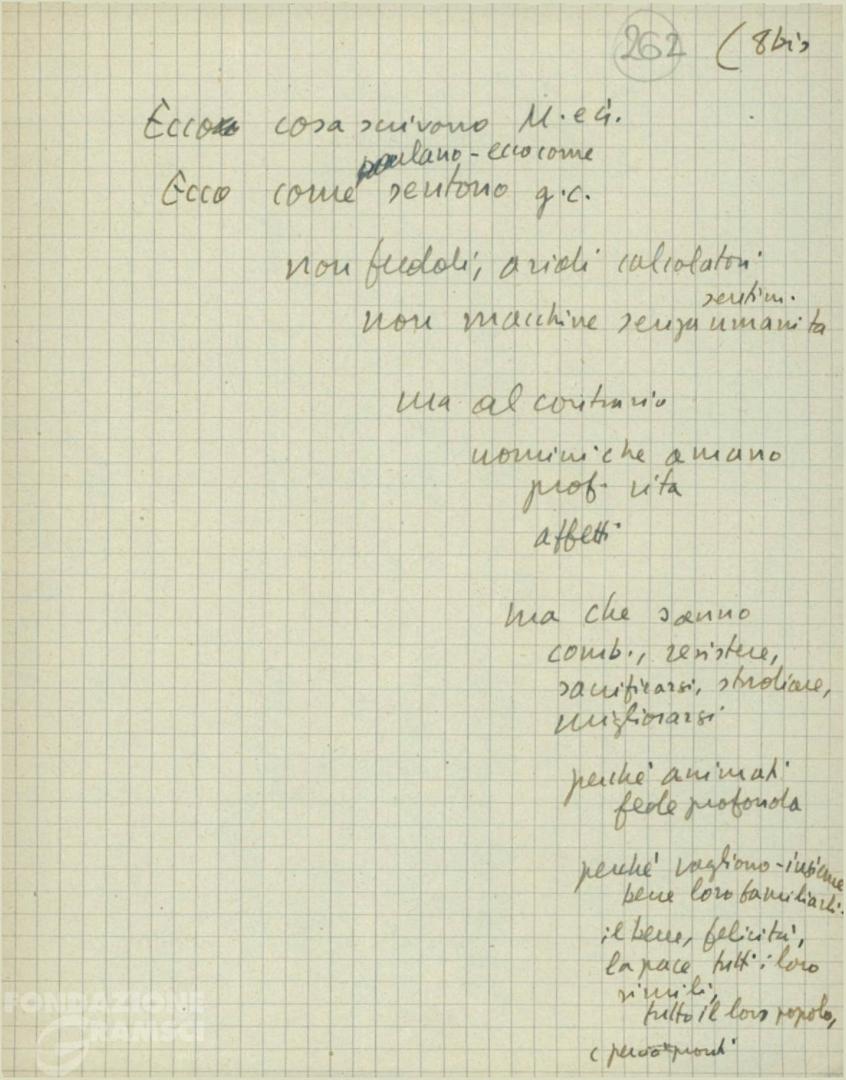 262 (8bis
Ecco cosa scrivono M. e G.
parlano - ecco come
Ecco come sentono g.c.
non freddi, aridi calcolatori
sentim.
non macchine senza umanità
ma al contrario
uomini che amano
prof. vita
affetti
ma che sanno
comb., resistere,
sacrificarsi, studiare,
migliorarsi
perché animati
fede profonda
perché vogliono - insieme
bene loro familiari -
il bene, felicità,
la pace tutti i loro
simili,
tutto il loro popolo,
e pronti
FONDAZIONE
GRAMSCI